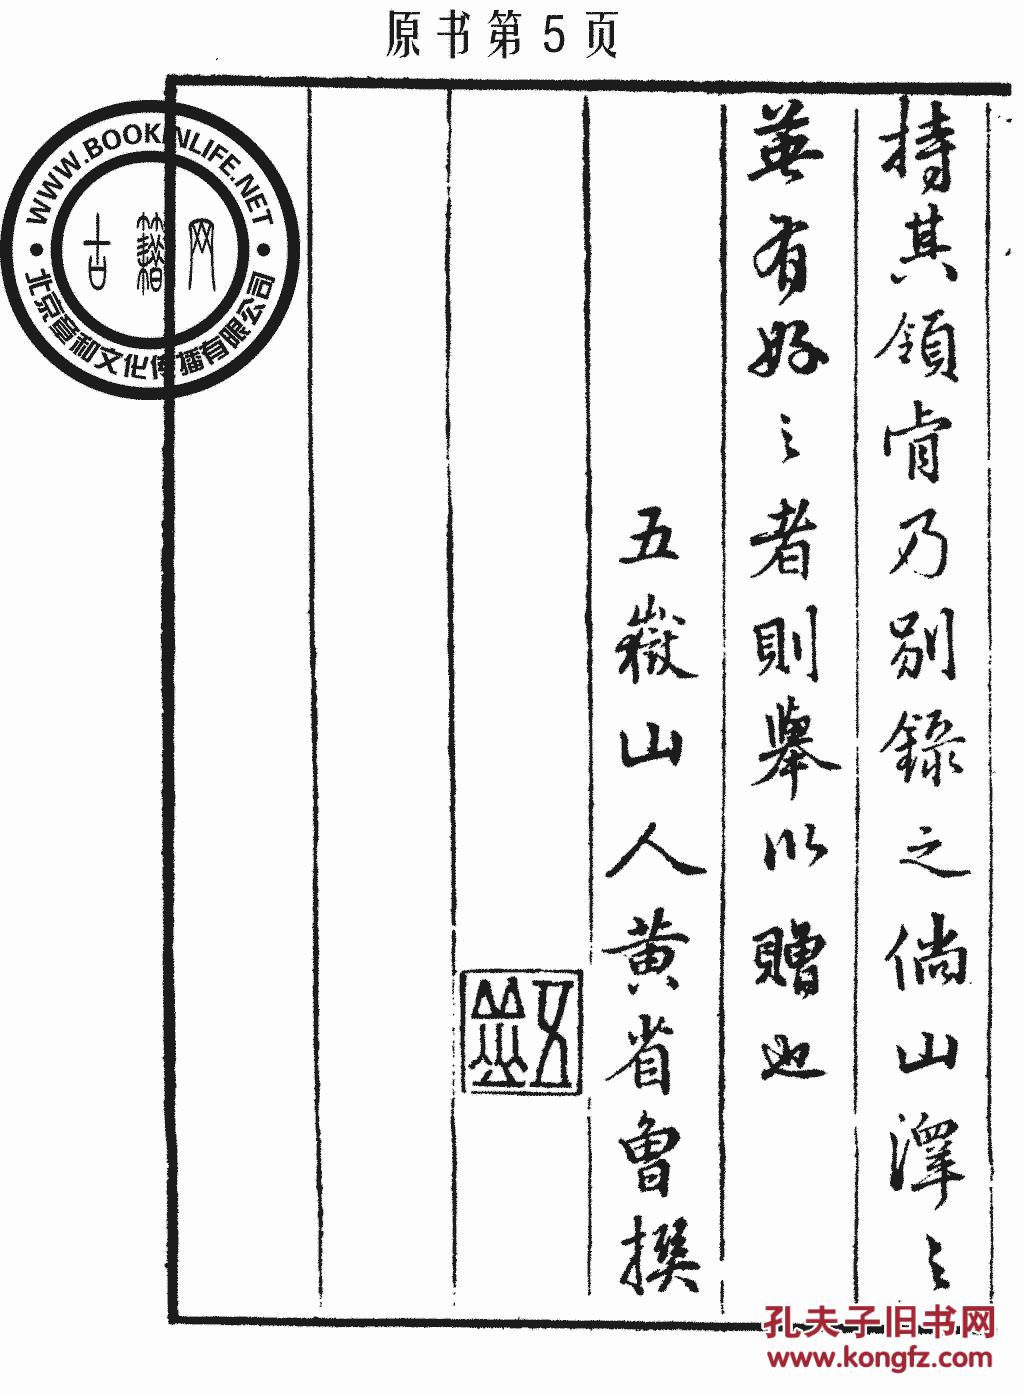 原书第5页
持其領肯乃别錄之倘山澤之
英有好之者則舉以贈也
五嶽山人黄省曾撰
五嶽
WWW.BOOKINLIFE.NET
古籍网
北京章和文化传播有限公司
孔夫子旧书网
www.kongfz.com